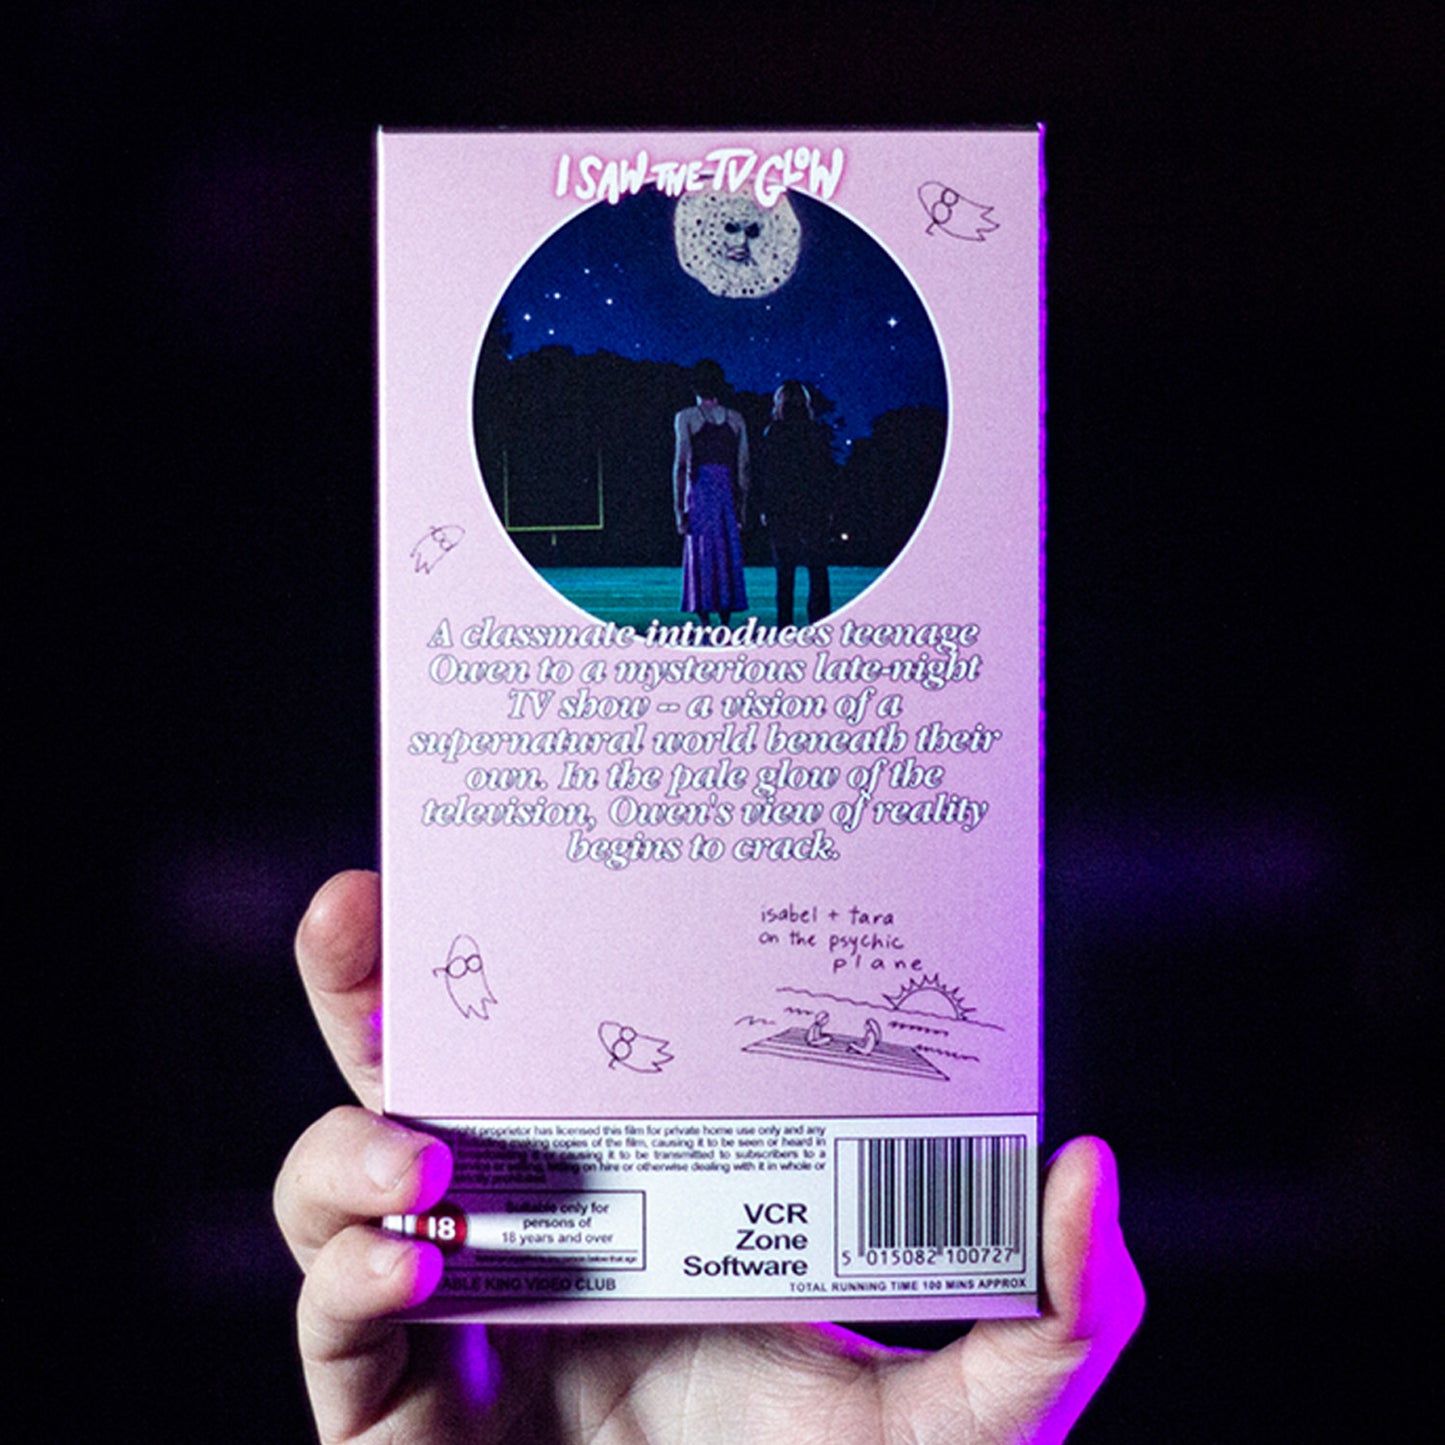 I SAW THE TV GLOW
A classmate introduces teenage
Owen to a mysterious late-night
TV show -- a vision of a
supernatural world beneath their
own. In the pale glow of the
television, Owen's view of reality
begins to crack.
isabel + tara
on the psychic
plane
proprietor has licensed this film for private home use only and any
making copies of the film, causing it to be seen or heard in
it or causing it to be transmitted to subscribers to a
or selling, letting on hire or otherwise dealing with it in whole or
strictly prohibited.
Suitable only for
persons of
18 years and over
18
VCR
Zone
Software
5 015082 100727
KING VIDEO CLUB
TOTAL RUNNING TIME 100 MINS APPROX